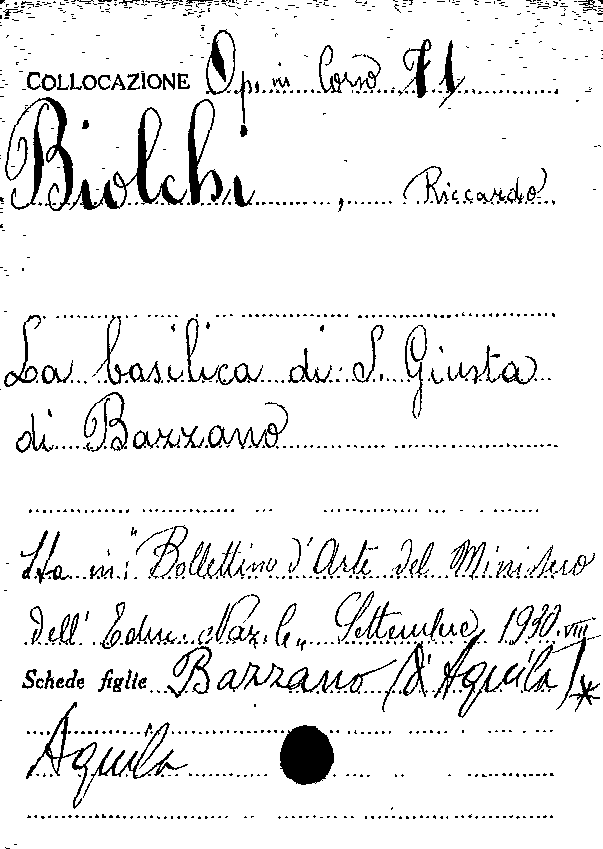 COLLOCAZIONE Op. in Corso 71
Biolchi, Riccardo
La basilica di S. Giusta
di Bazzano
Sta in: "Bollettino d'Arte del Ministero
dell' Educ. Naz.le„ Settembre 1930.VIII
Schede figlie Bazzano (d'Aquila) *
Aquila